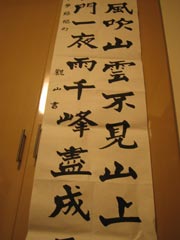 風吹山雲不見山上
門一夜雨千峰盡成
觀山書